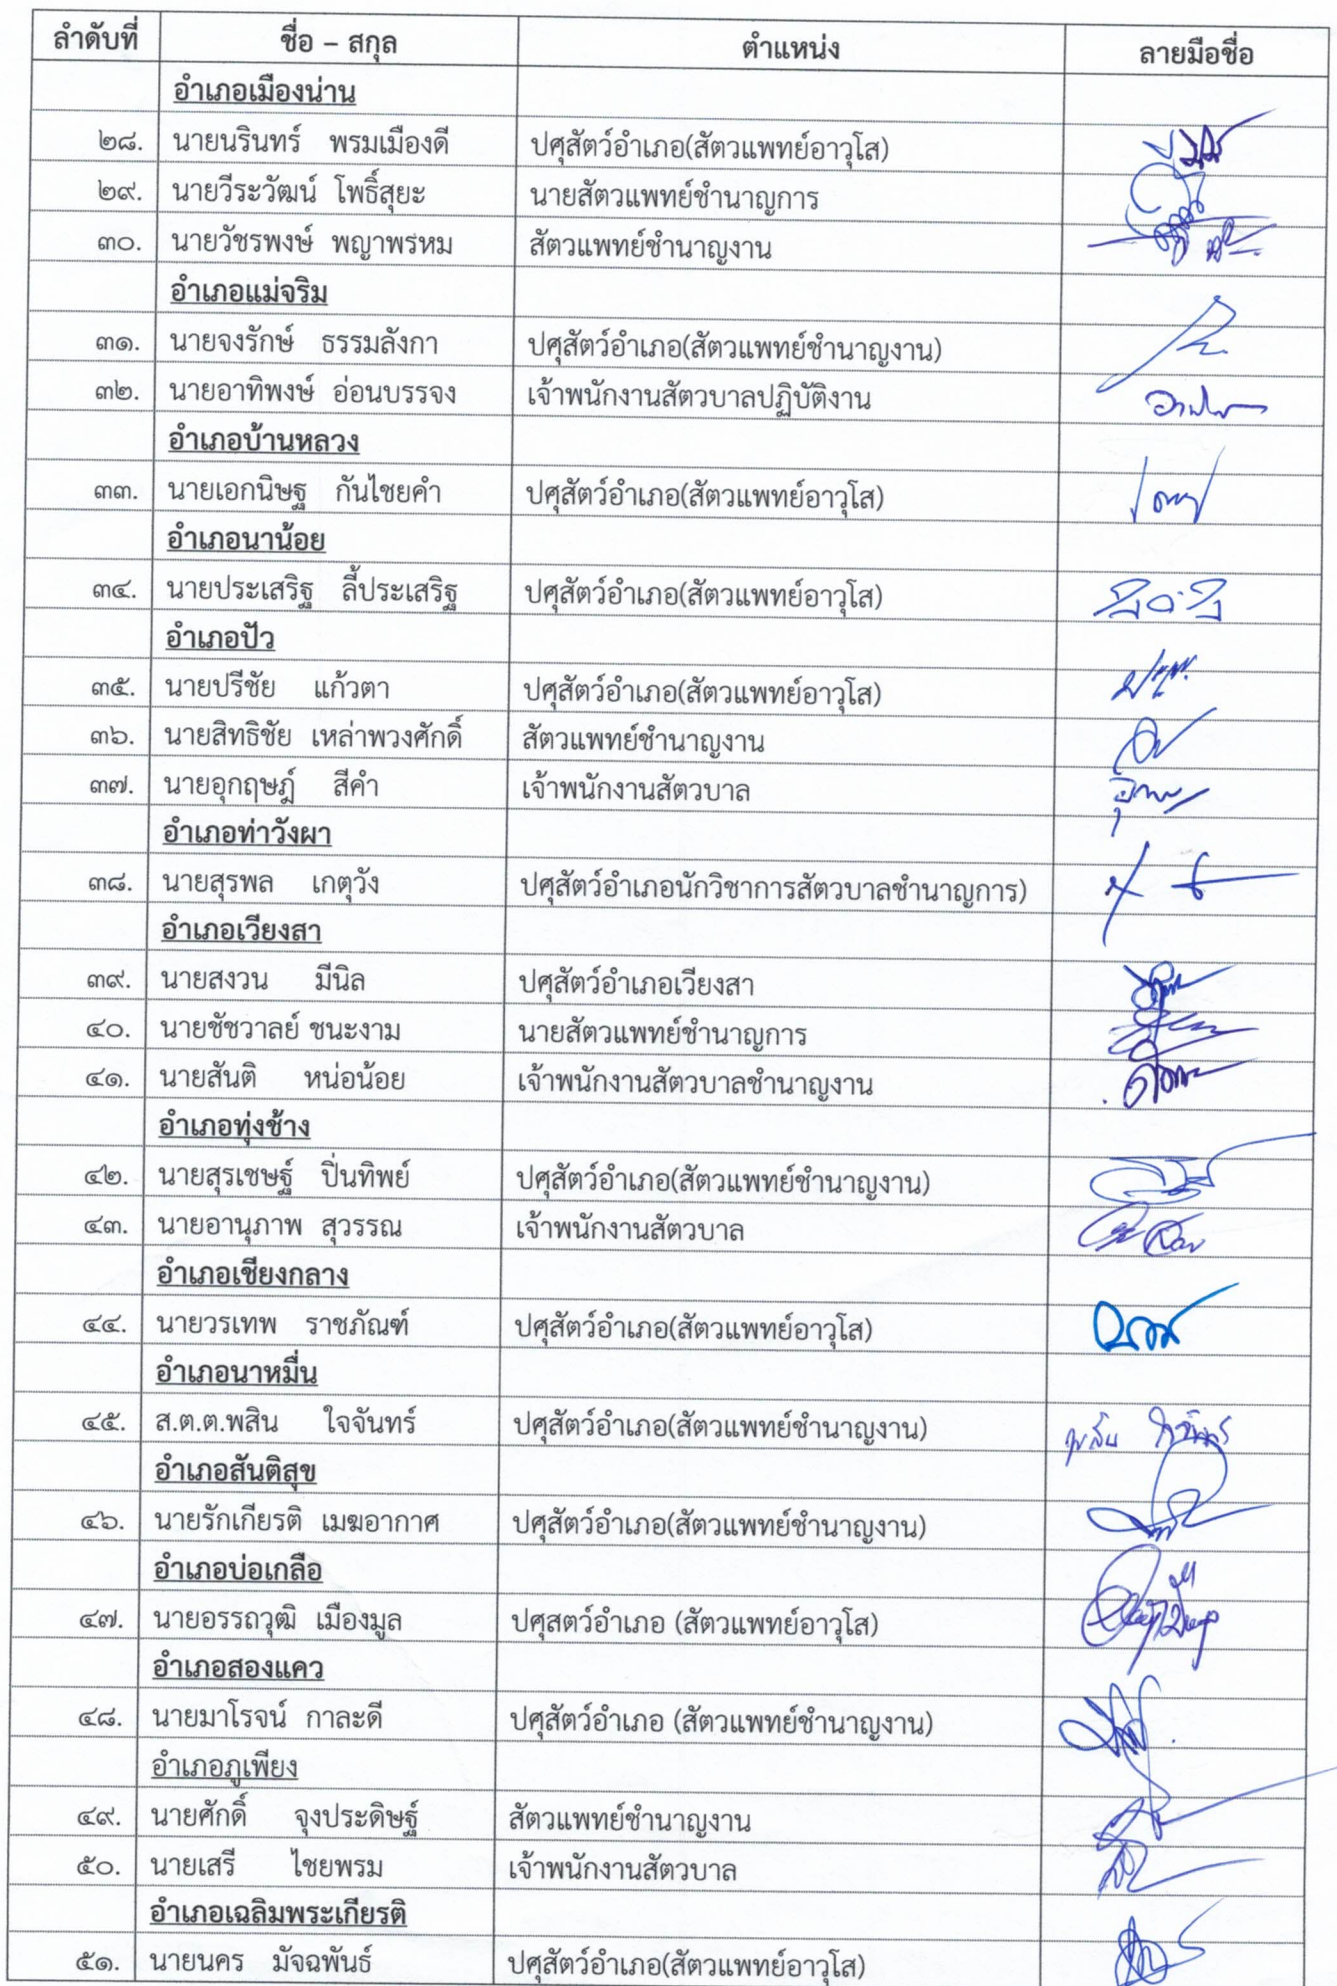 ลำดับที่ ชื่อ – สกุล ตำแหน่ง ลายมือชื่อ
อำเภอเมืองน่าน
๒๘. นายนรินทร์ พรมเมืองดี ปศุสัตว์อำเภอ(สัตวแพทย์อาวุโส)
๒๙. นายวีระวัฒน์ โพธิ์สุยะ นายสัตวแพทย์ชำนาญการ
๓๐. นายวัชรพงษ์ พญาพรหม สัตวแพทย์ชำนาญงาน
อำเภอแม่จริม
๓๑. นายจงรักษ์ ธรรมลังกา ปศุสัตว์อำเภอ(สัตวแพทย์ชำนาญงาน)
๓๒. นายอาทิพงษ์ อ่อนบรรจง เจ้าพนักงานสัตวบาลปฏิบัติงาน
อำเภอบ้านหลวง
๓๓. นายเอกนิษฐ กันไชยคำ ปศุสัตว์อำเภอ(สัตวแพทย์อาวุโส)
อำเภอนาน้อย
๓๔. นายประเสริฐ ลี้ประเสริฐ ปศุสัตว์อำเภอ(สัตวแพทย์อาวุโส)
อำเภอปัว
๓๕. นายปรีชัย แก้วตา ปศุสัตว์อำเภอ(สัตวแพทย์อาวุโส)
๓๖. นายสิทธิชัย เหล่าพวงศักดิ์ สัตวแพทย์ชำนาญงาน
๓๗. นายอุกฤษฎ์ สีคำ เจ้าพนักงานสัตวบาล
อำเภอท่าวังผา
๓๘. นายสุรพล เกตุวัง ปศุสัตว์อำเภอนักวิชาการสัตวบาลชำนาญการ)
อำเภอเวียงสา
๓๙. นายสงวน มีนิล ปศุสัตว์อำเภอเวียงสา
๔๐. นายชัชวาลย์ ชนะงาม นายสัตวแพทย์ชำนาญการ
๔๑. นายสันติ หน่อน้อย เจ้าพนักงานสัตวบาลชำนาญงาน
อำเภอทุ่งช้าง
๔๒. นายสุรเชษฐ์ ปิ่นทิพย์ ปศุสัตว์อำเภอ(สัตวแพทย์ชำนาญงาน)
๔๓. นายอานุภาพ สุวรรณ เจ้าพนักงานสัตวบาล
อำเภอเชียงกลาง
๔๔. นายวรเทพ ราชภัณฑ์ ปศุสัตว์อำเภอ(สัตวแพทย์อาวุโส)
อำเภอนาหมื่น
๔๕. ส.ต.ต.พสิน ใจจันทร์ ปศุสัตว์อำเภอ(สัตวแพทย์ชำนาญงาน) พสิน ใจจันทร์
อำเภอสันติสุข
๔๖. นายรักเกียรติ เมฆอากาศ ปศุสัตว์อำเภอ(สัตวแพทย์ชำนาญงาน)
อำเภอบ่อเกลือ
๔๗. นายอรรถวุฒิ เมืองมูล ปศุสตว์อำเภอ (สัตวแพทย์อาวุโส)
อำเภอสองแคว
๔๘. นายมาโรจน์ กาละดี ปศุสัตว์อำเภอ (สัตวแพทย์ชำนาญงาน)
อำเภอภูเพียง
๔๙. นายศักดิ์ จุงประดิษฐ์ สัตวแพทย์ชำนาญงาน
๕๐. นายเสรี ไชยพรม เจ้าพนักงานสัตวบาล
อำเภอเฉลิมพระเกียรติ
๕๑. นายนคร มัจฉพันธ์ ปศุสัตว์อำเภอ(สัตวแพทย์อาวุโส)